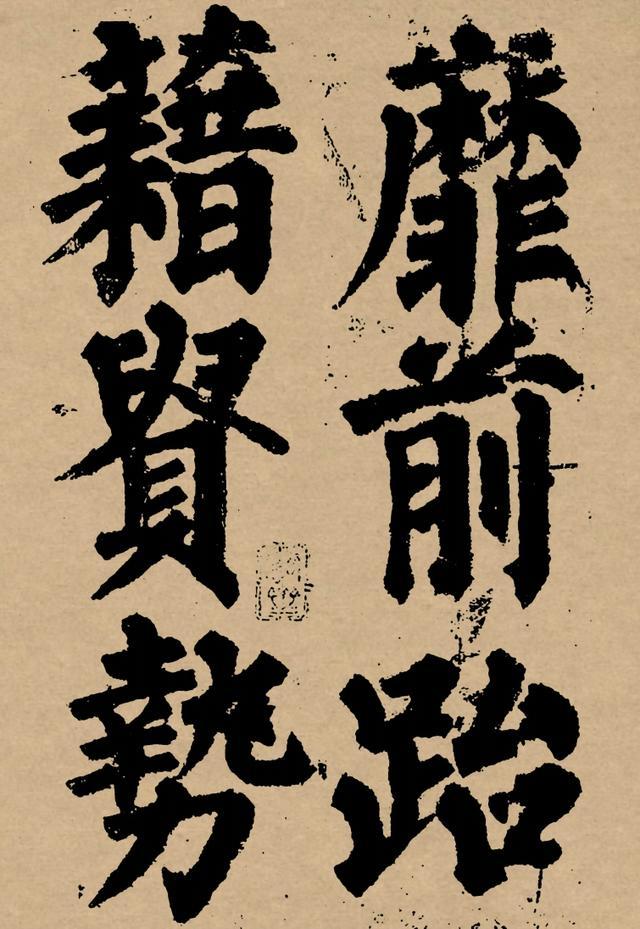 靡前跆
藉賢勢